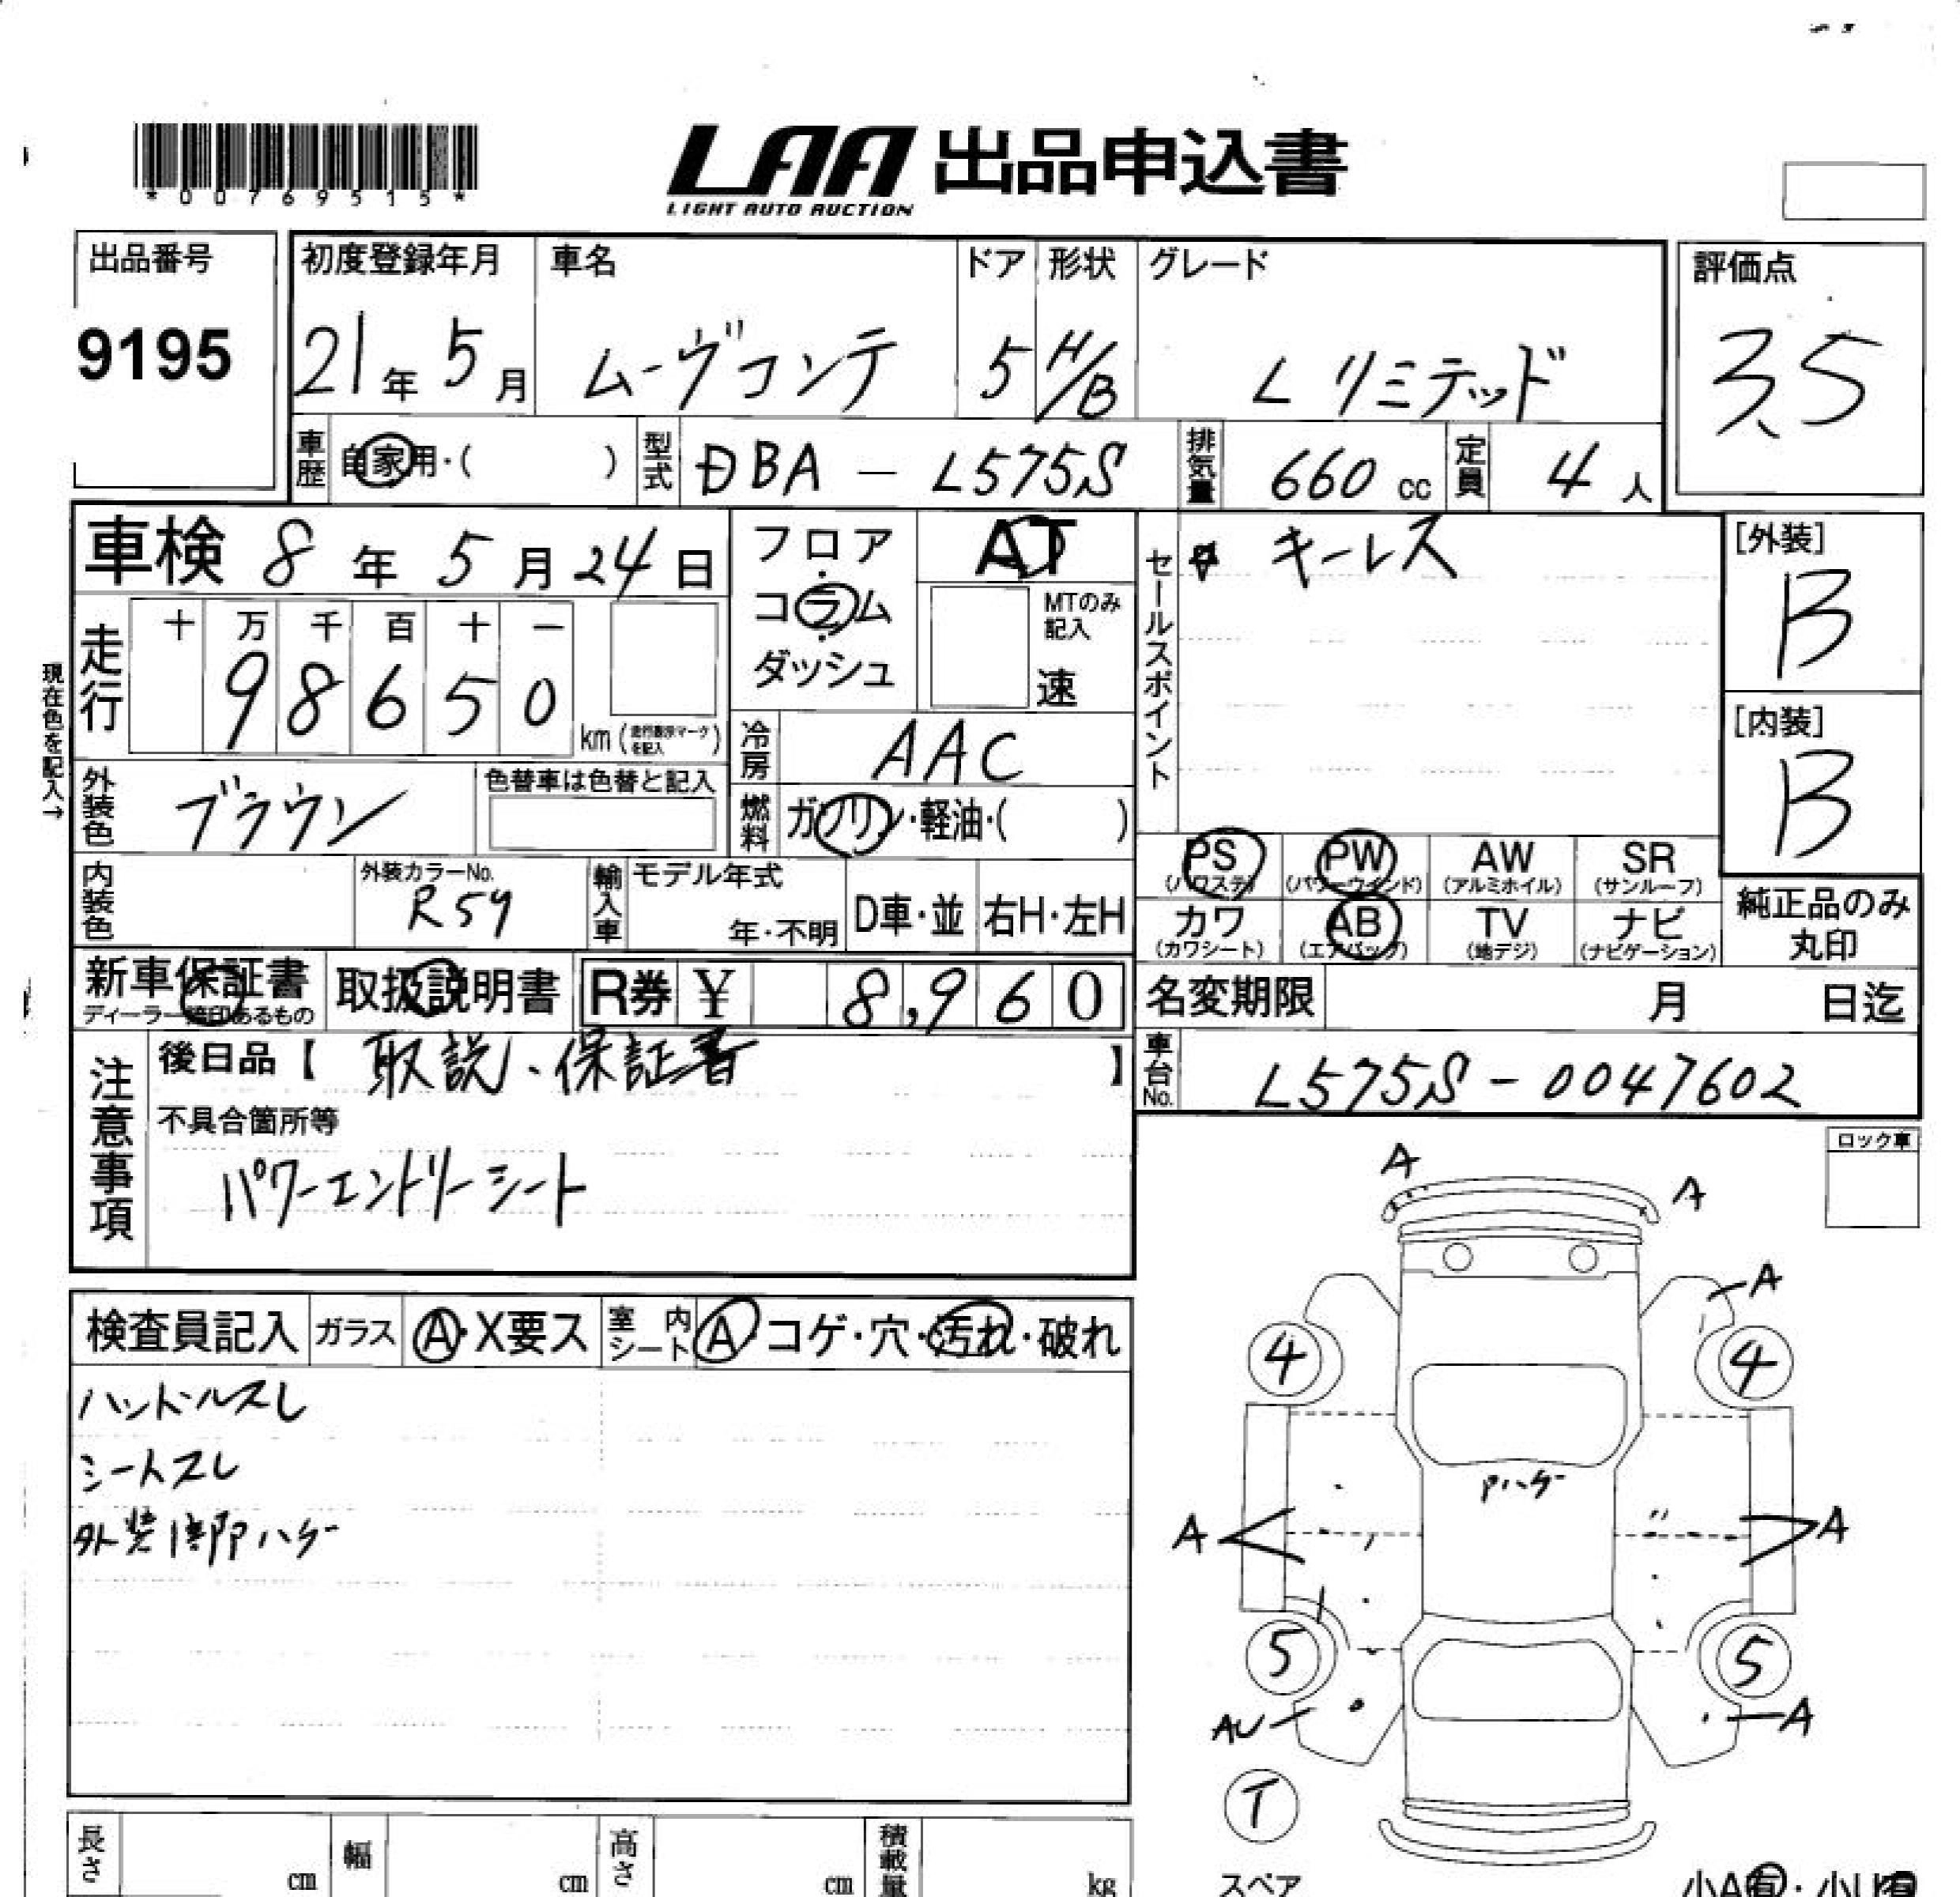 *00769515*
LAA 出品申込書
LIGHT AUTO AUCTION
出品番号
9195
初度登録年月
21年 5月
車名
ムーヴコンテ
ドア
5
形状
H/B
グレード
L リミテッド
評価点
3.5
車歴
自家用・( )
型式
DBA - L575S
排気量
660 cc
定員
4 人
車検 8年 5月 24日
フロア・コラム・ダッシュ
AT
MTのみ記入
速
セールスポイント
キーレス
[外装]
B
[内装]
B
現在色を記入→
走行
十 万 千 百 十 一
9 8 6 5 0
km (走行表示マークを記入)
冷房
AAC
外装色
ブラウン
色替車は色替と記入
燃料
ガソリン・軽油・( )
内装色
外装カラーNo.
R59
輸入車
モデル年式
年・不明
D車・並
右H・左H
PS (パワステ)
PW (パワーウインド)
AW (アルミホイル)
SR (サンルーフ)
カワ (カワシート)
AB (エアバッグ)
TV (地デジ)
ナビ (ナビゲーション)
純正品のみ丸印
新車保証書
ディーラー捺印あるもの
取扱説明書
R券 ¥ 8,960
名変期限 月 日迄
車台No.
L575S-0047602
注意事項
後日品【 取説、保証書 】
不具合箇所等
パワーエントリーシート
ロック車
検査員記入
ガラス
A・X要ス
室内シート
A・コゲ・穴・汚れ・破れ
ハンドルスレ
シートスレ
外装 ハゲ
A
A
A
4
4
Pハゲ
A
A
5
5
AU
A
T
スペア
長さ cm
幅 cm
高さ cm
積載量 kg
小A有・小U有